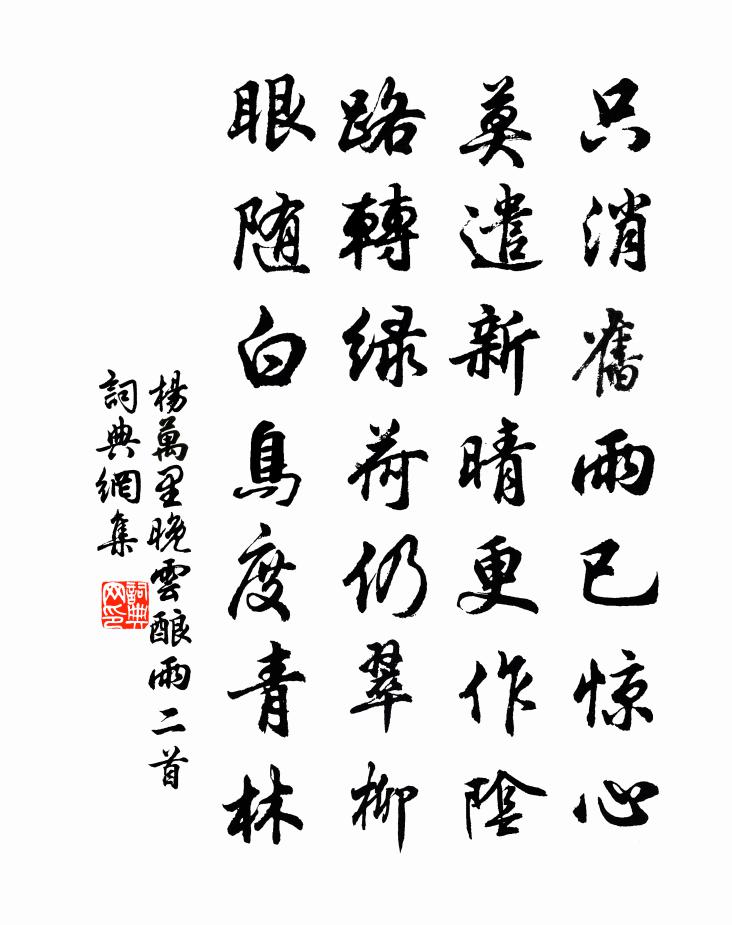 只消舊雨已惊心
莫遣新晴更作陰
路轉绿荷仍翠柳
眼随白鳥度青林
楊萬里晚雲酿雨二首
詞典網集
詞典网印